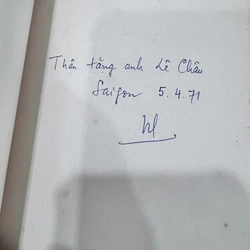 Thân tặng anh Lê Châu
Saigon 5.4.71